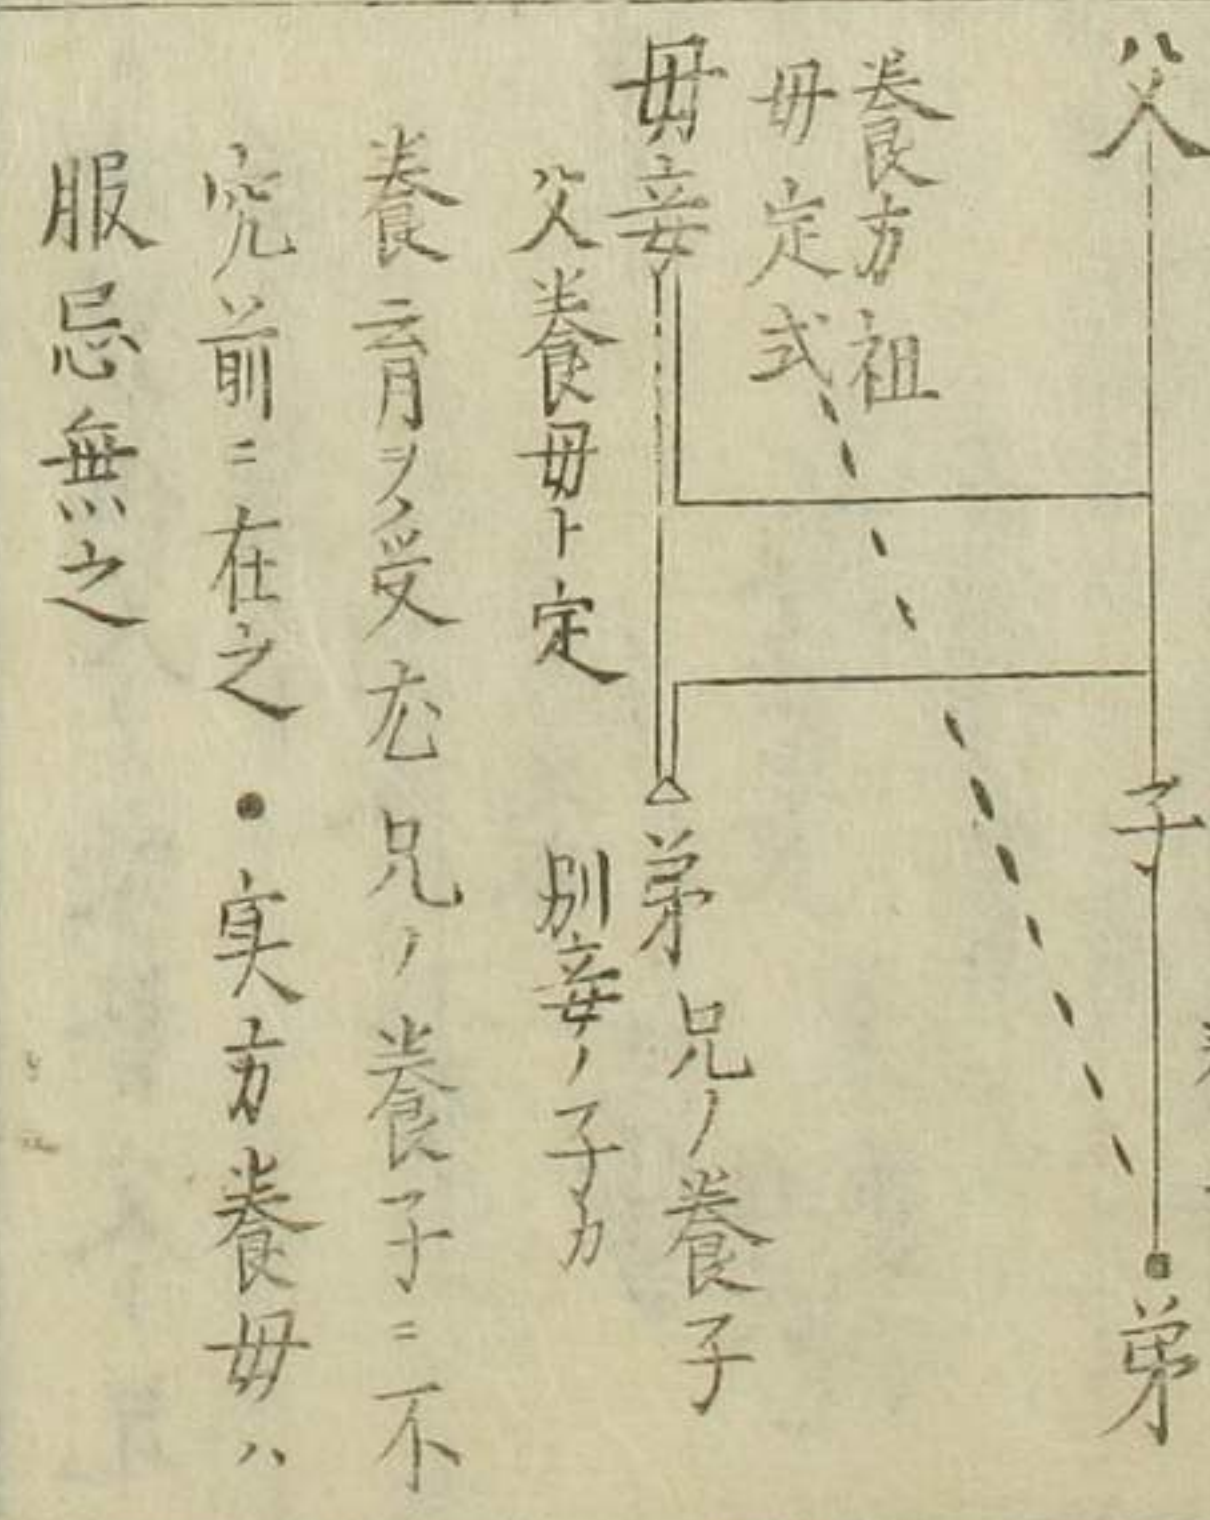 父
子
弟
養方祖
母定式
母妾
弟
兄ノ養子
父養母ト定
別妾ノ子カ
養育ヲ受尤兄ノ養子ニ不
究前ニ在之・実方養母ハ
服忌無之